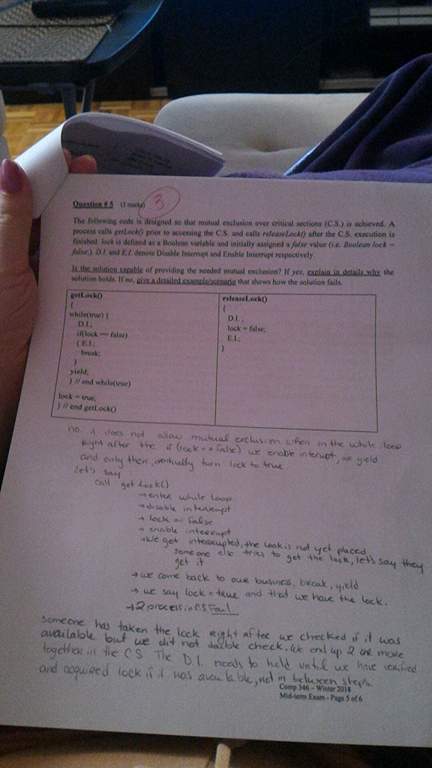 Question # 5 (3 marks) 3
The following code is designed so that mutual exclusion over critical sections (C.S.) is achieved. A
process calls getLock() prior to accessing the C.S. and calls releaseLock() after the C.S. execution is
finished. lock is defined as a Boolean variable and initially assigned a false value (i.e. Boolean lock =
false;). D.I. and E.I. denote Disable Interrupt and Enable Interrupt respectively.
Is the solution capable of providing the needed mutual exclusion? If yes, explain in details why the
solution holds. If no, give a detailed example/scenario that shows how the solution fails.
getLock()
{
while(true) {
D.I.;
if(lock == false)
{ E.I.;
break;
}
yield;
} // end while(true)
lock = true;
} // end getLock()
releaseLock()
{
D.I. ;
lock = false;
E.I.;
}
no. it does not allow mutual exclusion when in the while loop
Right after the if (lock == false) we enable interupt, we yield
and only then, eventually turn lock to true
let's say
call getLock()
→ enter while loop
→ disable interrupt
→ lock = False
→ enable interrupt
→ we get interrupted, the lock is not yet placed,
someone else tries to get the lock, let's say they
get it
→ we come back to our business, break, yield
→ we say lock = true and that we have the lock.
→ 2 process in CS Fail
someone has taken the lock right after we checked if it was
available but we did not double check. We end up 2 or more
together in the CS. The D.I. needs to hold until we have verified
and acquired lock if it was available, not in between steps.
Comp 346 – Winter 2014
Mid-term Exam - Page 5 of 6